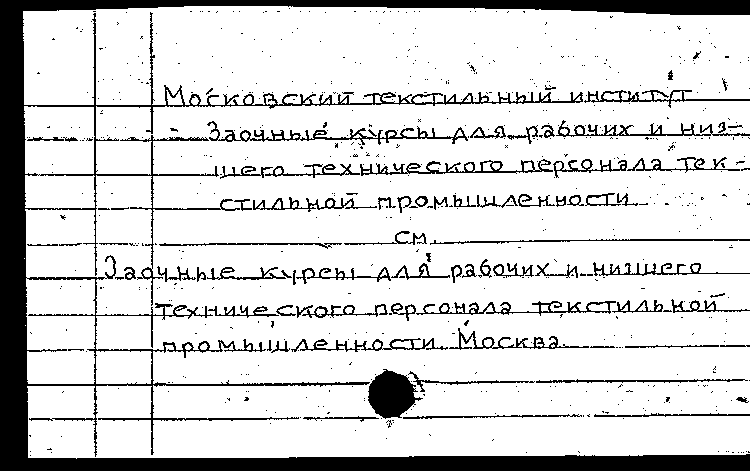 Московский текстильный институт
- Заочные курсы для рабочих и низ-
шего технического персонала тек-
стильной промышленности
см.
Заочные курсы для рабочих и низшего
технического персонала текстильной
промышленности. Москва.